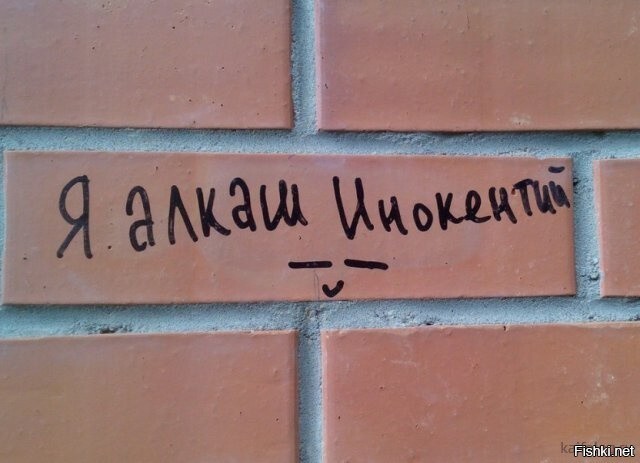 Я алкаш Инокентий
Fishki.net